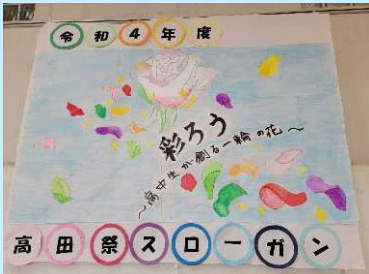 令和４年度
彩ろう
～高中生が創る一輪の花～
高田祭スローガン